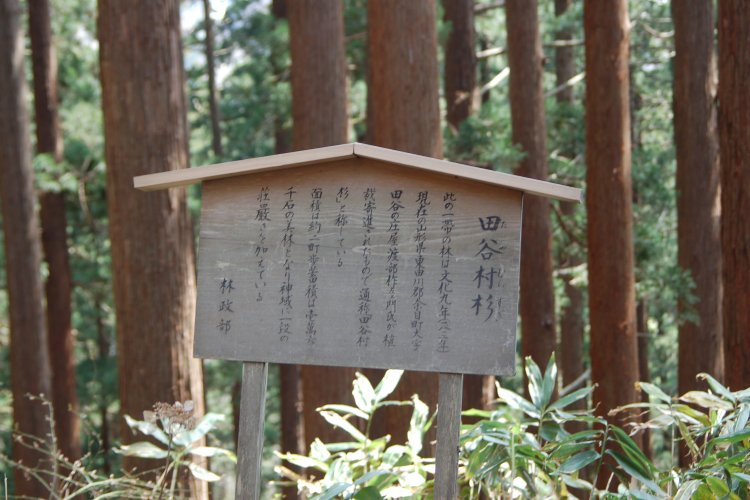 田谷村杉
たやむらすぎ
此の一帯の林は文化九年(一八一二年
現在の山形県東田川郡余目町大字
田谷の庄屋渡部
門氏が植
栽寄進されたもので通称田谷村
杉と称している
面積は約一町歩蓄積は壱萬
千石の美林となり神域に一段の
荘厳さを加えている
林政部